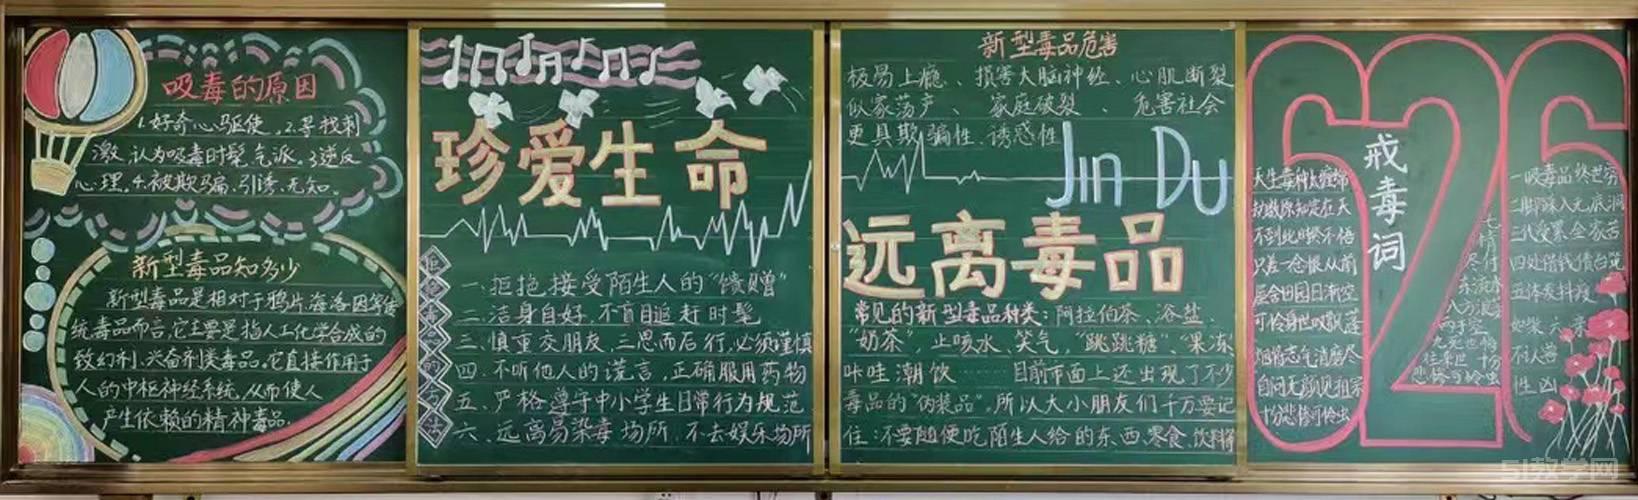 吸毒的原因
1.好奇心驱使，2.寻找刺
激，认为吸毒时髦，气派。3.逆反
心理。4.被欺骗，引诱，无知。
新型毒品知多少
新型毒品是相对于鸦片海洛因等传
统毒品而言，它主要是指人工化学合成的
致幻剂、兴奋剂类毒品。它直接作用于
人的中枢神经系统，从而使人
产生依赖的精神毒品。
珍爱生命
一、拒绝接受陌生人的“馈赠”
二、洁身自好，不盲目追赶时髦
三、慎重交朋友，三思而后行，必须谨慎
四、不听他人的谎言，正确服用药物
五、严格遵守中小学生日常行为规范
六、远离易染毒场所，不去娱乐场所
新型毒品危害
极易上瘾、损害大脑神经、心肌断裂
似家荡产、家庭破裂、危害社会
更具欺骗性、诱惑性
Jin Du
远离毒品
常见的新型毒品种类：阿拉伯茶、浴盐、
“奶茶”，止咳水、笑气，“跳跳糖”、“果冻、
咔哇潮饮 目前市面上还出现了不少
毒品的“伪装品”。所以大小朋友们千万要记
住：不要随便吃陌生人给的东西、零食、饮料等
626
戒毒词
天生毒种太痴缠
劫数原知定在天
不到此时终不悟
只差一念恨从前
屋舍田园日渐空
可怜身世叹飘蓬
烟将志气消磨尽
自问无颜见祖宗
十分悲惨可怜虫
一吸毒品终世穷
二脚踩入无底洞
三代受累全家苦
四处借钱债台筑
五体发抖疫
51教学网